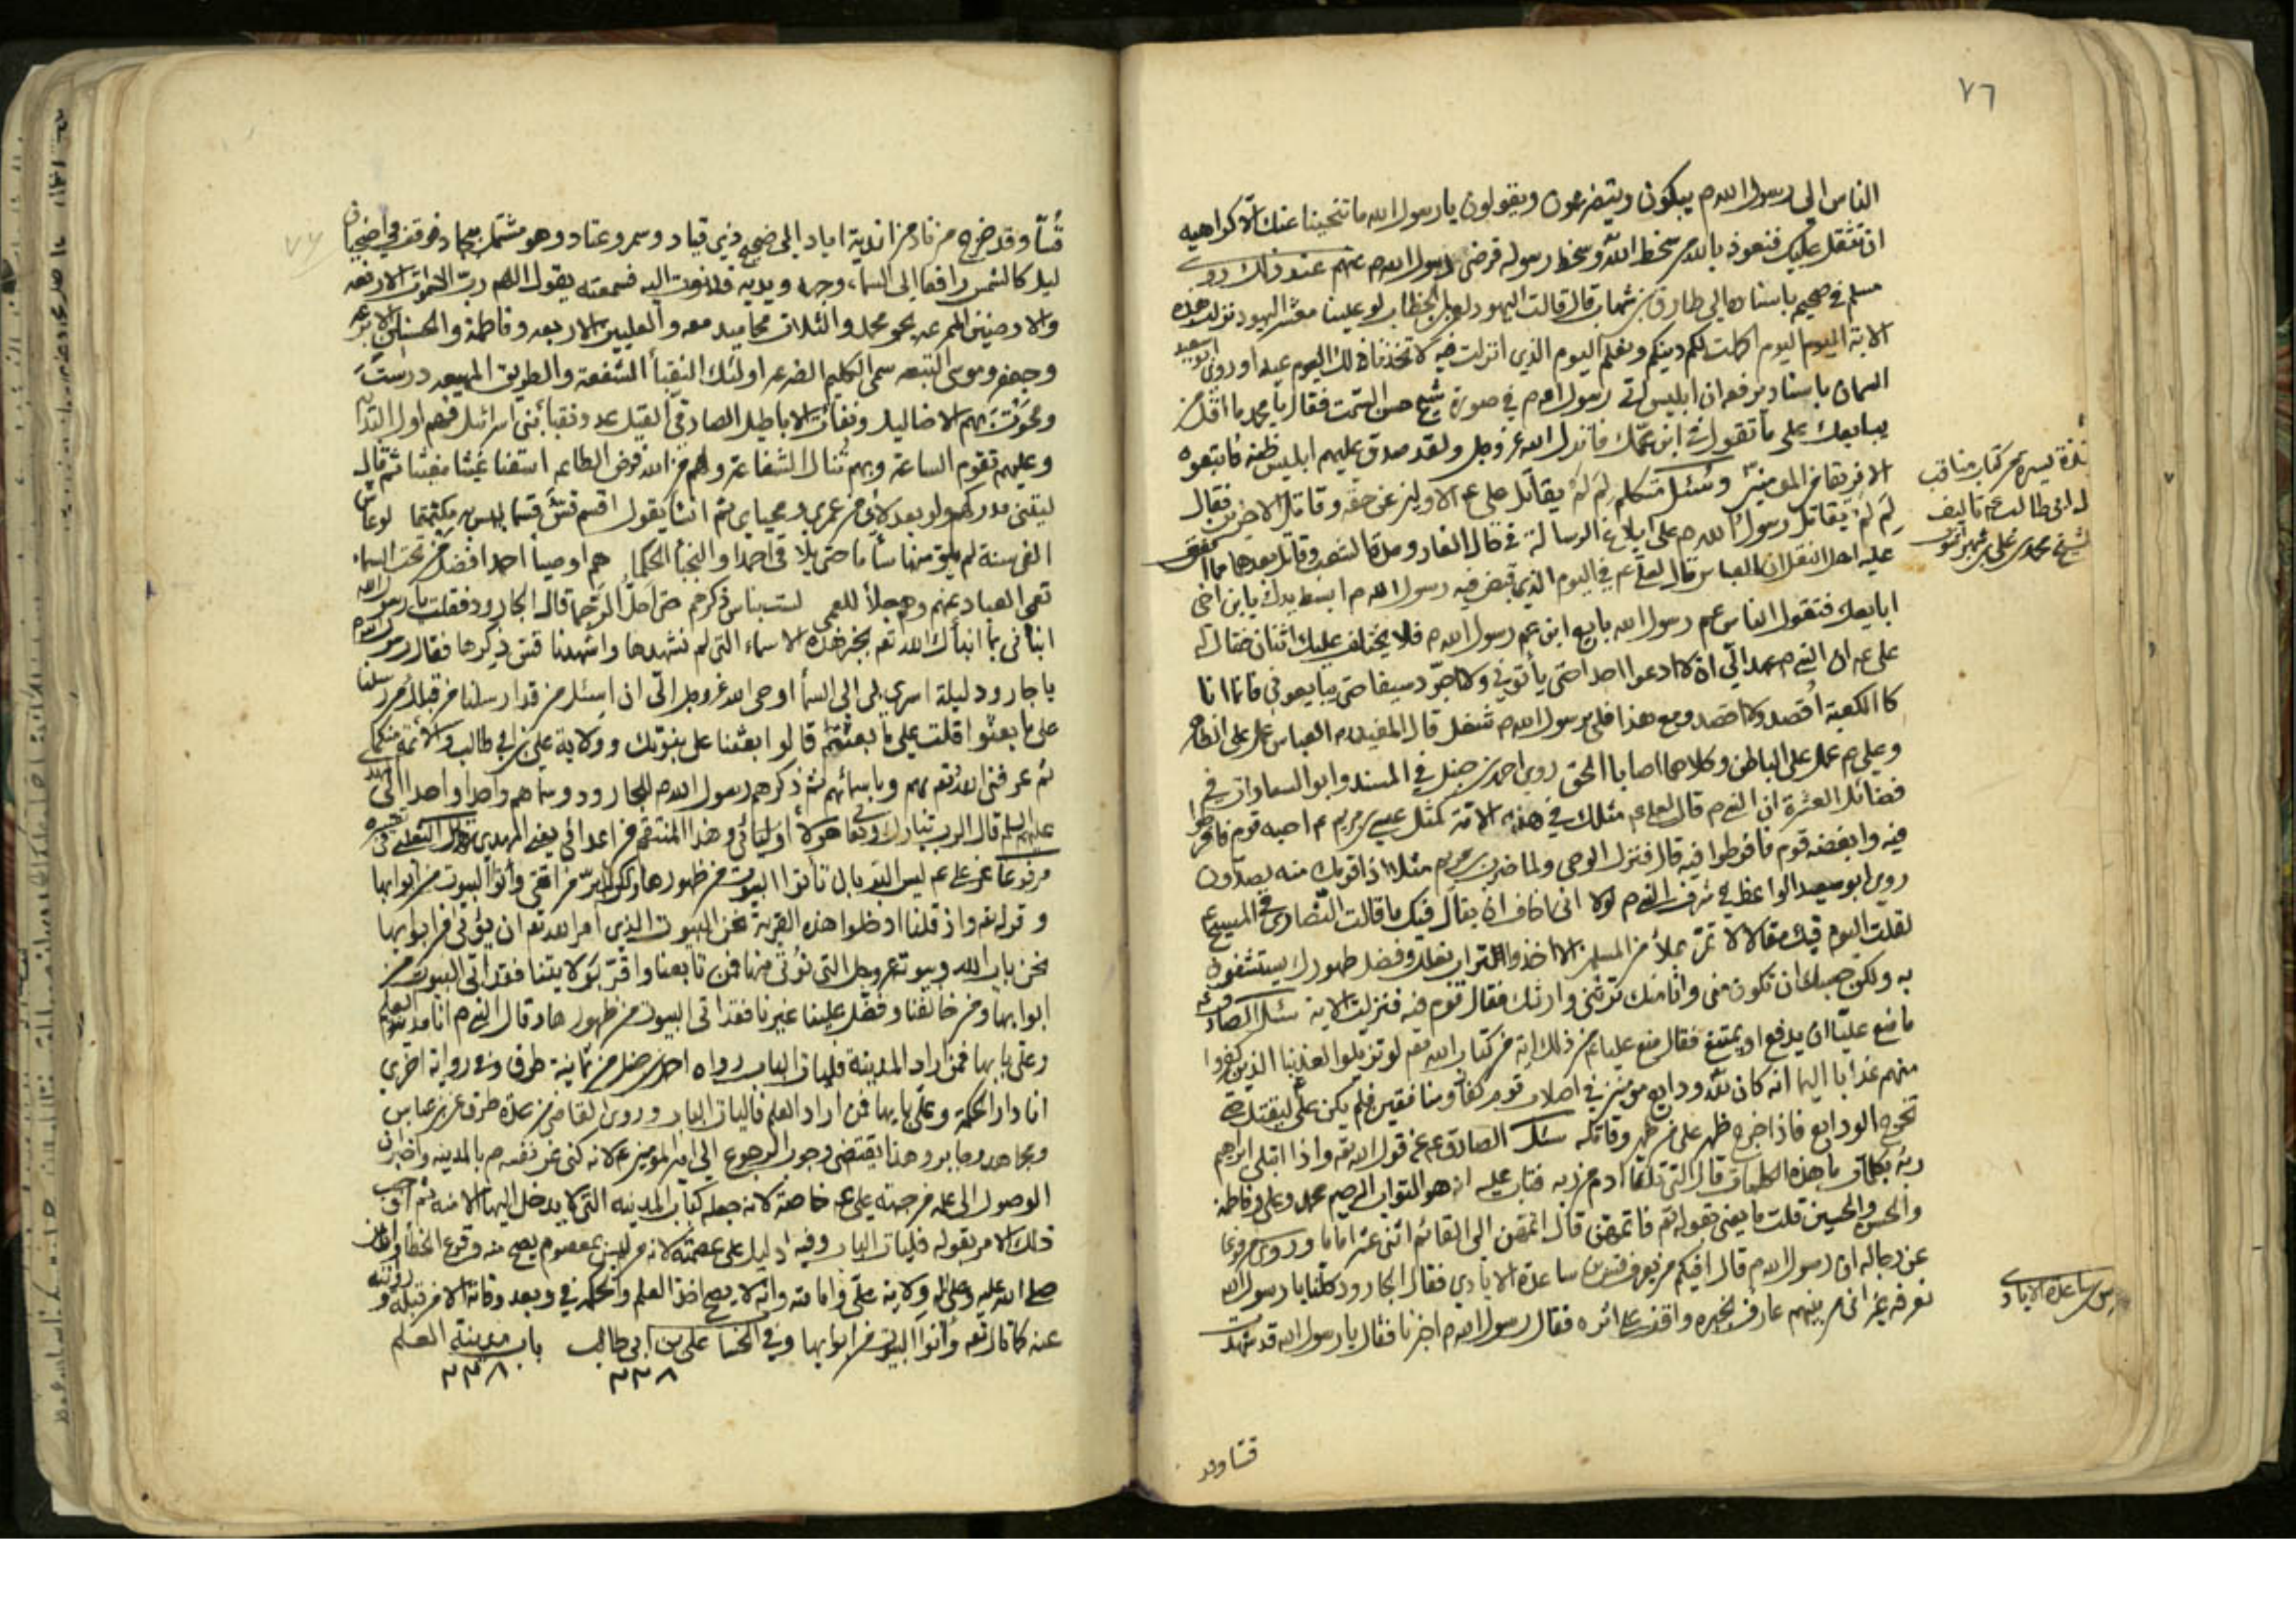 ٧٦
الناس الى رسول الله م يبكون ويتضرعون ويقولون يا رسول الله ما تنحينا عنك الا كراهيه
ان تثقل عليك فنعوذ بالله من سخط الله وسخط رسوله فرضى رسول الله م عنهم عند ذلك روى
مسلم في صحيحه باسناده الى طارق بن شهاب قال قالت اليهود لعمر بن الخطاب لو علينا معشر اليهود نزلت هذه
الاية اليوم اكملت لكم دينكم ونعلم اليوم الذي انزلت فيه لاتخذنا ذلك اليوم عيدا وروى ابو سعيد
السمان باسناده مرفوعه ان ابليس اتى رسول الله م في صورة شيخ حسن السمت فقال يا محمد ما اقل من
يبايعك على ما تقول في ابن عمك فانزل الله عز وجل ولقد صدق عليهم ابليس ظنه فاتبعوه
الا فريقا من المؤمنين وسئل متكلم لم لم يقاتل علي ع الاولين عن حقه وقاتل الاخرين فقال
لم لم يقاتل رسول الله م على ابلاغ الرسالة في حال الغار ومدة الشعب وقاتل بعدهما
عليه اهل النقل ان العباس قال لعلي ع في اليوم الذي قبض فيه رسول الله م ابسط يدك يا بن اخى
ابايعك فتقول الناس عم رسول الله بايع ابن عم رسول الله م فلا يختلف عليك اثنان فقال له
علي ع ان النبي م عهد الي ان لا ادعوا احدا حتى يأتوني ولا اجرد سيفا حتى يبايعوني فانما انا
كالكعبة اقصد ولا اقصد ومع هذا فلي برسول الله م شغل قال المفيد ره العباس عمل على الظاهر
وعلي ع عمل على الباطن وكلاهما اصابا الحق روى احمد بن حنبل في المسند وابو السعادات في
فضائل العشرة ان النبي م قال لعلي ع مثلك في هذه الامة كمثل عيسى بن مريم ع احبه قوم فافرطوا
فيه وابغضه قوم فافرطوا فيه قال فنزل الوحى ولما ضرب بن مريم مثلا اذا قومك منه يصدون
روى ابو سعيد الواعظ في شرف النبي م لولا انى اخاف ان يقال فيك ما قالت النصارى في المسيح ع
لقلت اليوم فيك مقالا لا تمر بملأ من المسلمين الا اخذوا التراب نعلك وفضل طهورك يستشفون
به ولكن حسبك ان تكون منى وانا منك ترثنى وارثك فقال قوم فيه فنزلت الاية سئل الصادق ع
ما منع عليا ان يدفع او يمتنع فقال منع عليا من ذلك اية من كتاب الله تع لو تزيلوا لعذبنا الذين كفروا
منهم عذابا اليما انه كان لله ودايع مؤمنين في اصلاب قوم كفار ومنافقين فلم يكن علي ليقتلهم حتى
تخرج الودايع فاذا خرج ظهر على من ظهر وقاتله سئل الصادق ع عن قول الله تع واذا ابتلى ابراهيم
ربه بكلمات ما هذه الكلمات قال التى تلقاها ادم من ربه فتاب عليه انه هو التواب الرحيم محمد وعلى وفاطمة
والحسن والحسين قلت ما يعنى بقوله تع فاتمهن قال اتمهن الى القائم اثنى عشر اماما وروى مرفوعا
عن رجاله ان رسول الله م قال افيكم من يعرف قس بن ساعدة الايادي فقال الجارود كلنا يا رسول الله
نعرفه غير انى من بينهم عارف بخبره واقف على اثره فقال رسول الله م اخبرنا فقال يا رسول الله قد شهدت
كتاب مناقب
ابى طالب ع تاليف
شيخ محمد بن علي بن شهر اشوب
قس بن ساعدة الاياد
قسا وقد
قسا وقد خرج من ناد من اندية اياد الى ضحضح ذي قتاد وسمر وعتاد وهو مشتمل بنجاد فوقف في اضحيان
ليل كالشمس رافعا الى السماء وجهه ويديه فدنوت اليه فسمعته يقول اللهم رب السموات الارفعه
والارضين الممرعه بحق محمد والثلاث محاميد معه والعليين الاربعه وفاطمة والحسنان الابرعه
وجعفر وموسى التبعه سمى الكليم الضرعه اولئك النقباء الشفعة والطريق المهيعه درست
ومحوت بهم الاضاليل ونفات الاباطيل الصادقي القيل عدد نقباء بنى اسرائيل فهم اول البداية
وعليهم تقوم الساعة وبهم تنال الشفاعة ولهم من الله فرض الطاعه اسقنا غيثا مغيثا ثم قال
ليتنى مدركهم ولو بعد لاي من عمري ومحياي ثم انشأ يقول اقسم قس قسما ليس به مكتتما لو عاش
الفى سنة لم يلق منها سأما حتى يلاقى احمدا والنجبأ الحكما هم اوصيأ احمد افضل من تحت السماء
تعمى العباد عنهم وهم جلأ للعمى لست بناس ذكرهم حتى احل الرجما قال الجارود فقلت يا رسول الله
انبأنى بما انبأك الله تع بخبر هذه الاسماء التى لم نشهدها واشهدنا قس ذكرها فقال رسول الله م
يا جارود ليلة اسرى بي الى السمأ اوحى الله عز وجل الى ان اسئل من قد ارسلنا من قبلك من رسلنا
على ما بعثوا قلت على ما بعثتم قالوا بعثنا على نبوتك وولاية علي بن ابي طالب والائمة منكما
ثم عرفنى الله تع بهم وباسمائهم ثم ذكرهم رسول الله م للجارود وسماهم واحدا واحدا الى المهدى
عليهم السلم قال الرب تبارك وتعا هؤلاء اوليائى وهذا المنتقم من اعدائى يعنى المهدى الثعلبي في تفسيره
مرفوعا عن علي ع ليس البر بان تأتوا البيوت من ظهورها ولكن البر من اتقى وأتوا البيوت من ابوابها
وقوله تع واذ قلنا ادخلوا هذه القرية نحن البيوت الذي امر الله تع ان يؤتى من ابوابها
نحن باب الله وبيوته عز وجل التى نؤتى منها فمن تابعنا واقر بولايتنا فقد اتى البيوت من
ابوابها ومن خالفنا وفضل علينا غيرنا فقد اتى البيوت من ظهورها وقال النبي م انا مدينة العلم
وعلي بابها فمن اراد المدينة فليأت الباب رواه احمد بن حنبل من ثمانية طرق وفي رواية اخرى
انا دار الحكمة وعلي بابها فمن اراد العلم فاليات الباب وروى القاضى من عدة طرق عن بن عباس
ومجاهد وجابر وهذا يقتضى وجوب الرجوع الى امير المؤمنين ع لانه كنى عن نفسه م بالمدينه واخبر ان
الوصول الى علمه من جهته علي ع خاصة لانه جعله كباب المدينه التى لا يدخل اليها الا منه ثم اوجب
ذلك الامر بقوله فليات الباب وفيه دليل على عصمته لانه من ليس بمعصوم يصح منه وقوع الخطأ
صلى الله عليه وعلى اله ولاية علي وامامته وانه لا يصح اخذ العلم والحكمه في وبعد وفاته الا من قبله وروايته
عنه كما قال تع وأتوا البيوت من ابوابها وفي الحسا علي بن ابى طالب باب مدينة العلم
٢٣٨ ٢٣٨
٧٧